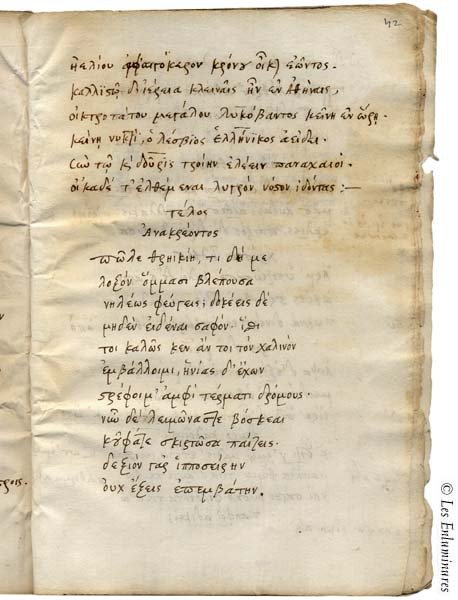 42
ἠελίου κρόνου οἶκον ἐῶντος.
καλλιστὼ δ' ἱέρεια κλειναῖς ἦν ἐν Ἀθήναις,
οἰκτροτάτου μεγάλου λυκάβαντος κείνη ἐν ὥρῃ.
κείνη νυκτὶ, ὁ λέσβιος ἑλλήνικος ἀείδει.
σὺν τῶ κὶ δοῦρις τροίην ἑλέειν παναχαιοὶ.
οἴκαδέ τ' ἐλθέμεναι λυγρὸν νόστον ἰδόντας :—
τέλος
Ἀνακρέοντος
πῶλε θρηικίη, τί δή με
λοξὸν ὄμμασι βλέπουσα
νηλέως φεύγεις; δοκέεις δέ
μηδὲν εἰδέναι σοφόν. ἴσθι
τοι καλῶς κεν ἄν τοι τὸν χαλινὸν
ἐμβάλλοιμι, ἡνίας δ' ἔχων
στρέφοιμ' ἀμφὶ τέρματι δρόμους.
νῦν δὲ λειμῶνας τε βόσκεαι
κοῦφά τε σκιρτῶσα παίζεις.
δεξιὸν γὰρ ἱπποσείρην
οὐχ ἕξεις ἐπεμβάτην.
© Les Enluminures